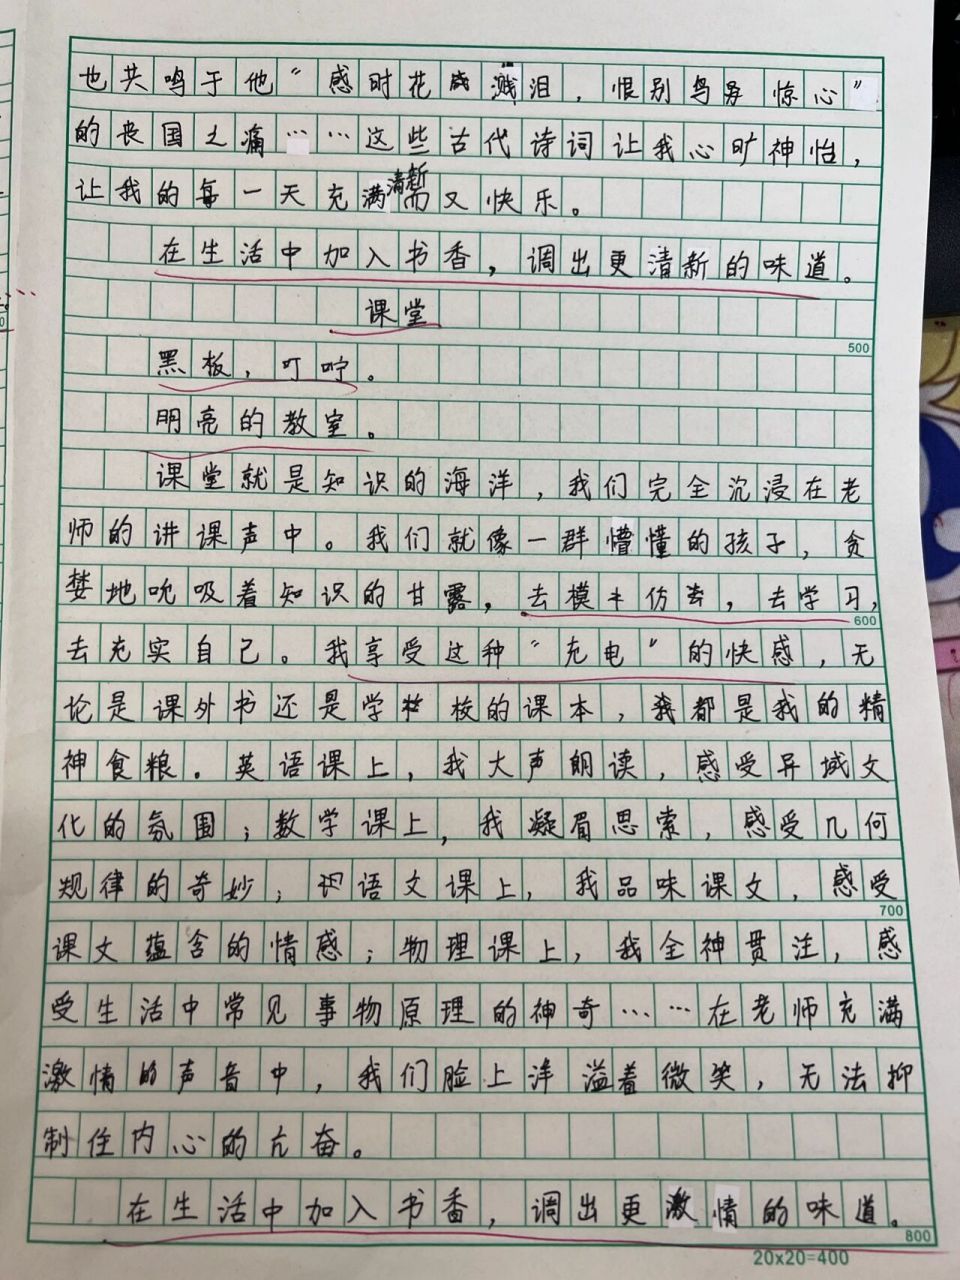 也共鸣于他“感时花感溅泪，恨别鸟别惊心”
的丧国之痛……这些古代诗词让我心旷神怡，
让我的每一天充满清新而又快乐。
在生活中加入书香，调出更清新的味道。
课堂
500
黑板，叮咛。
明亮的教室。
课堂就是知识的海洋，我们完全沉浸在老
师的讲课声中。我们就像一群懵懂的孩子，贪
婪地吮吸着知识的甘露，去模卡仿去，去学习，
600
去充实自己。我享受这种“充电”的快感，无
论是课外书还是学校的课本，我都是我的精
神食粮。英语课上，我大声朗读，感受异域文
化的氛围；数学课上，我凝眉思索，感受几何
规律的奇妙；语文课上，我品味课文，感受
700
课文蕴含的情感；物理课上，我全神贯注，感
受生活中常见事物原理的神奇……在老师充满
激情的声音中，我们脸上洋溢着微笑，无法抑
制住内心的亢奋。
在生活中加入书香，调出更激情的味道。
800
20x20=400